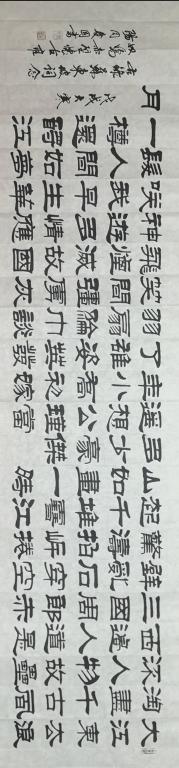 大江東去浪
淘盡千古風
流人物故壘
西邊人道是
三國周郎赤
壁亂石穿空
驚濤拍岸捲
起千堆雪江
山如畫一時
多少豪傑
遙想公瑾當
年小喬初嫁
了雄姿英發
羽扇綸巾談
笑間強虜灰
飛煙滅故國
神遊多情應
笑我早生華
髮人間如夢
一樽還酹江
月
戊戌大寒
蘇東坡詞念